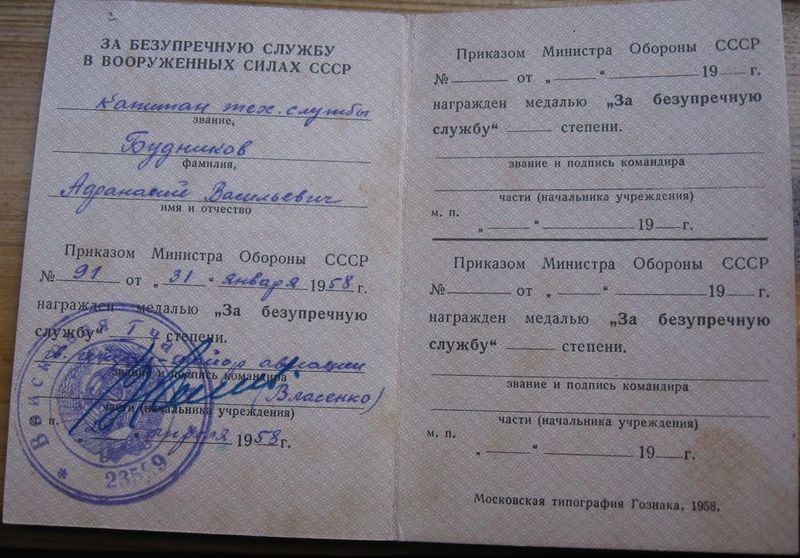 ЗА БЕЗУПРЕЧНУЮ СЛУЖБУ
В ВООРУЖЕННЫХ СИЛАХ СССР
Капитан тех. службы
звание,
Будников
фамилия,
Афанасий Васильевич
имя и отчество
Приказом Министра Обороны СССР
№ 91 от „ 31 “ января 1958 г.
награжден медалью „За безупречную
службу“ степени.
майор авиации
звание и подпись командира
(Власенко)
части (начальника учреждения)
п. 1958 г.
* Войсковая часть
23559
Приказом Министра Обороны СССР
№ от „ “ 19 г.
награжден медалью „За безупречную
службу“ степени.
звание и подпись командира
части (начальника учреждения)
м. п.
„ “ 19 г.
Приказом Министра Обороны СССР
№ от „ “ 19 г.
награжден медалью „За безупречную
службу“ степени.
звание и подпись командира
части (начальника учреждения)
м. п.
„ “ 19 г.
Московская типография Гознака. 1958.